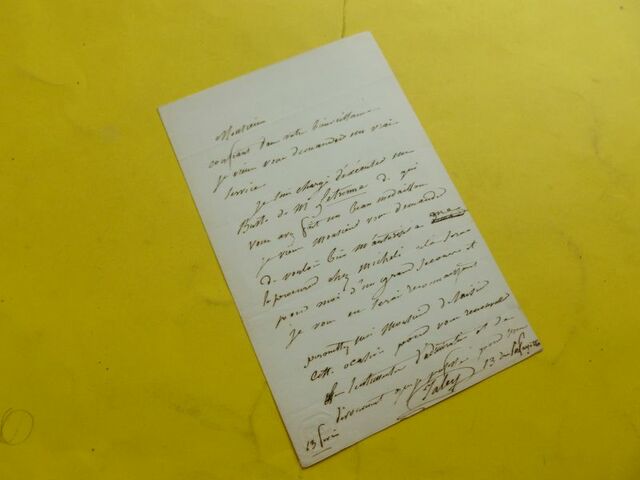 Monsieur
confiant dans votre bienveillance
je viens vous demander un vrai
service.
je suis chargé d'exécuter un
Buste de Mr Letronne de qui
vous avez fait un beau medaillon
je viens Monsieur vous demande
de vouloir bien m'autoriser a
le procurer chez Micheli cela sera
pour moi d'un grand secours et
je vous en serai reconnaissant
permettez moi Monsieur de saisir
cette ocasion pour vous renouveler
les sentiments d'admiration et de
devouement pour
13 rue Lafayette
13